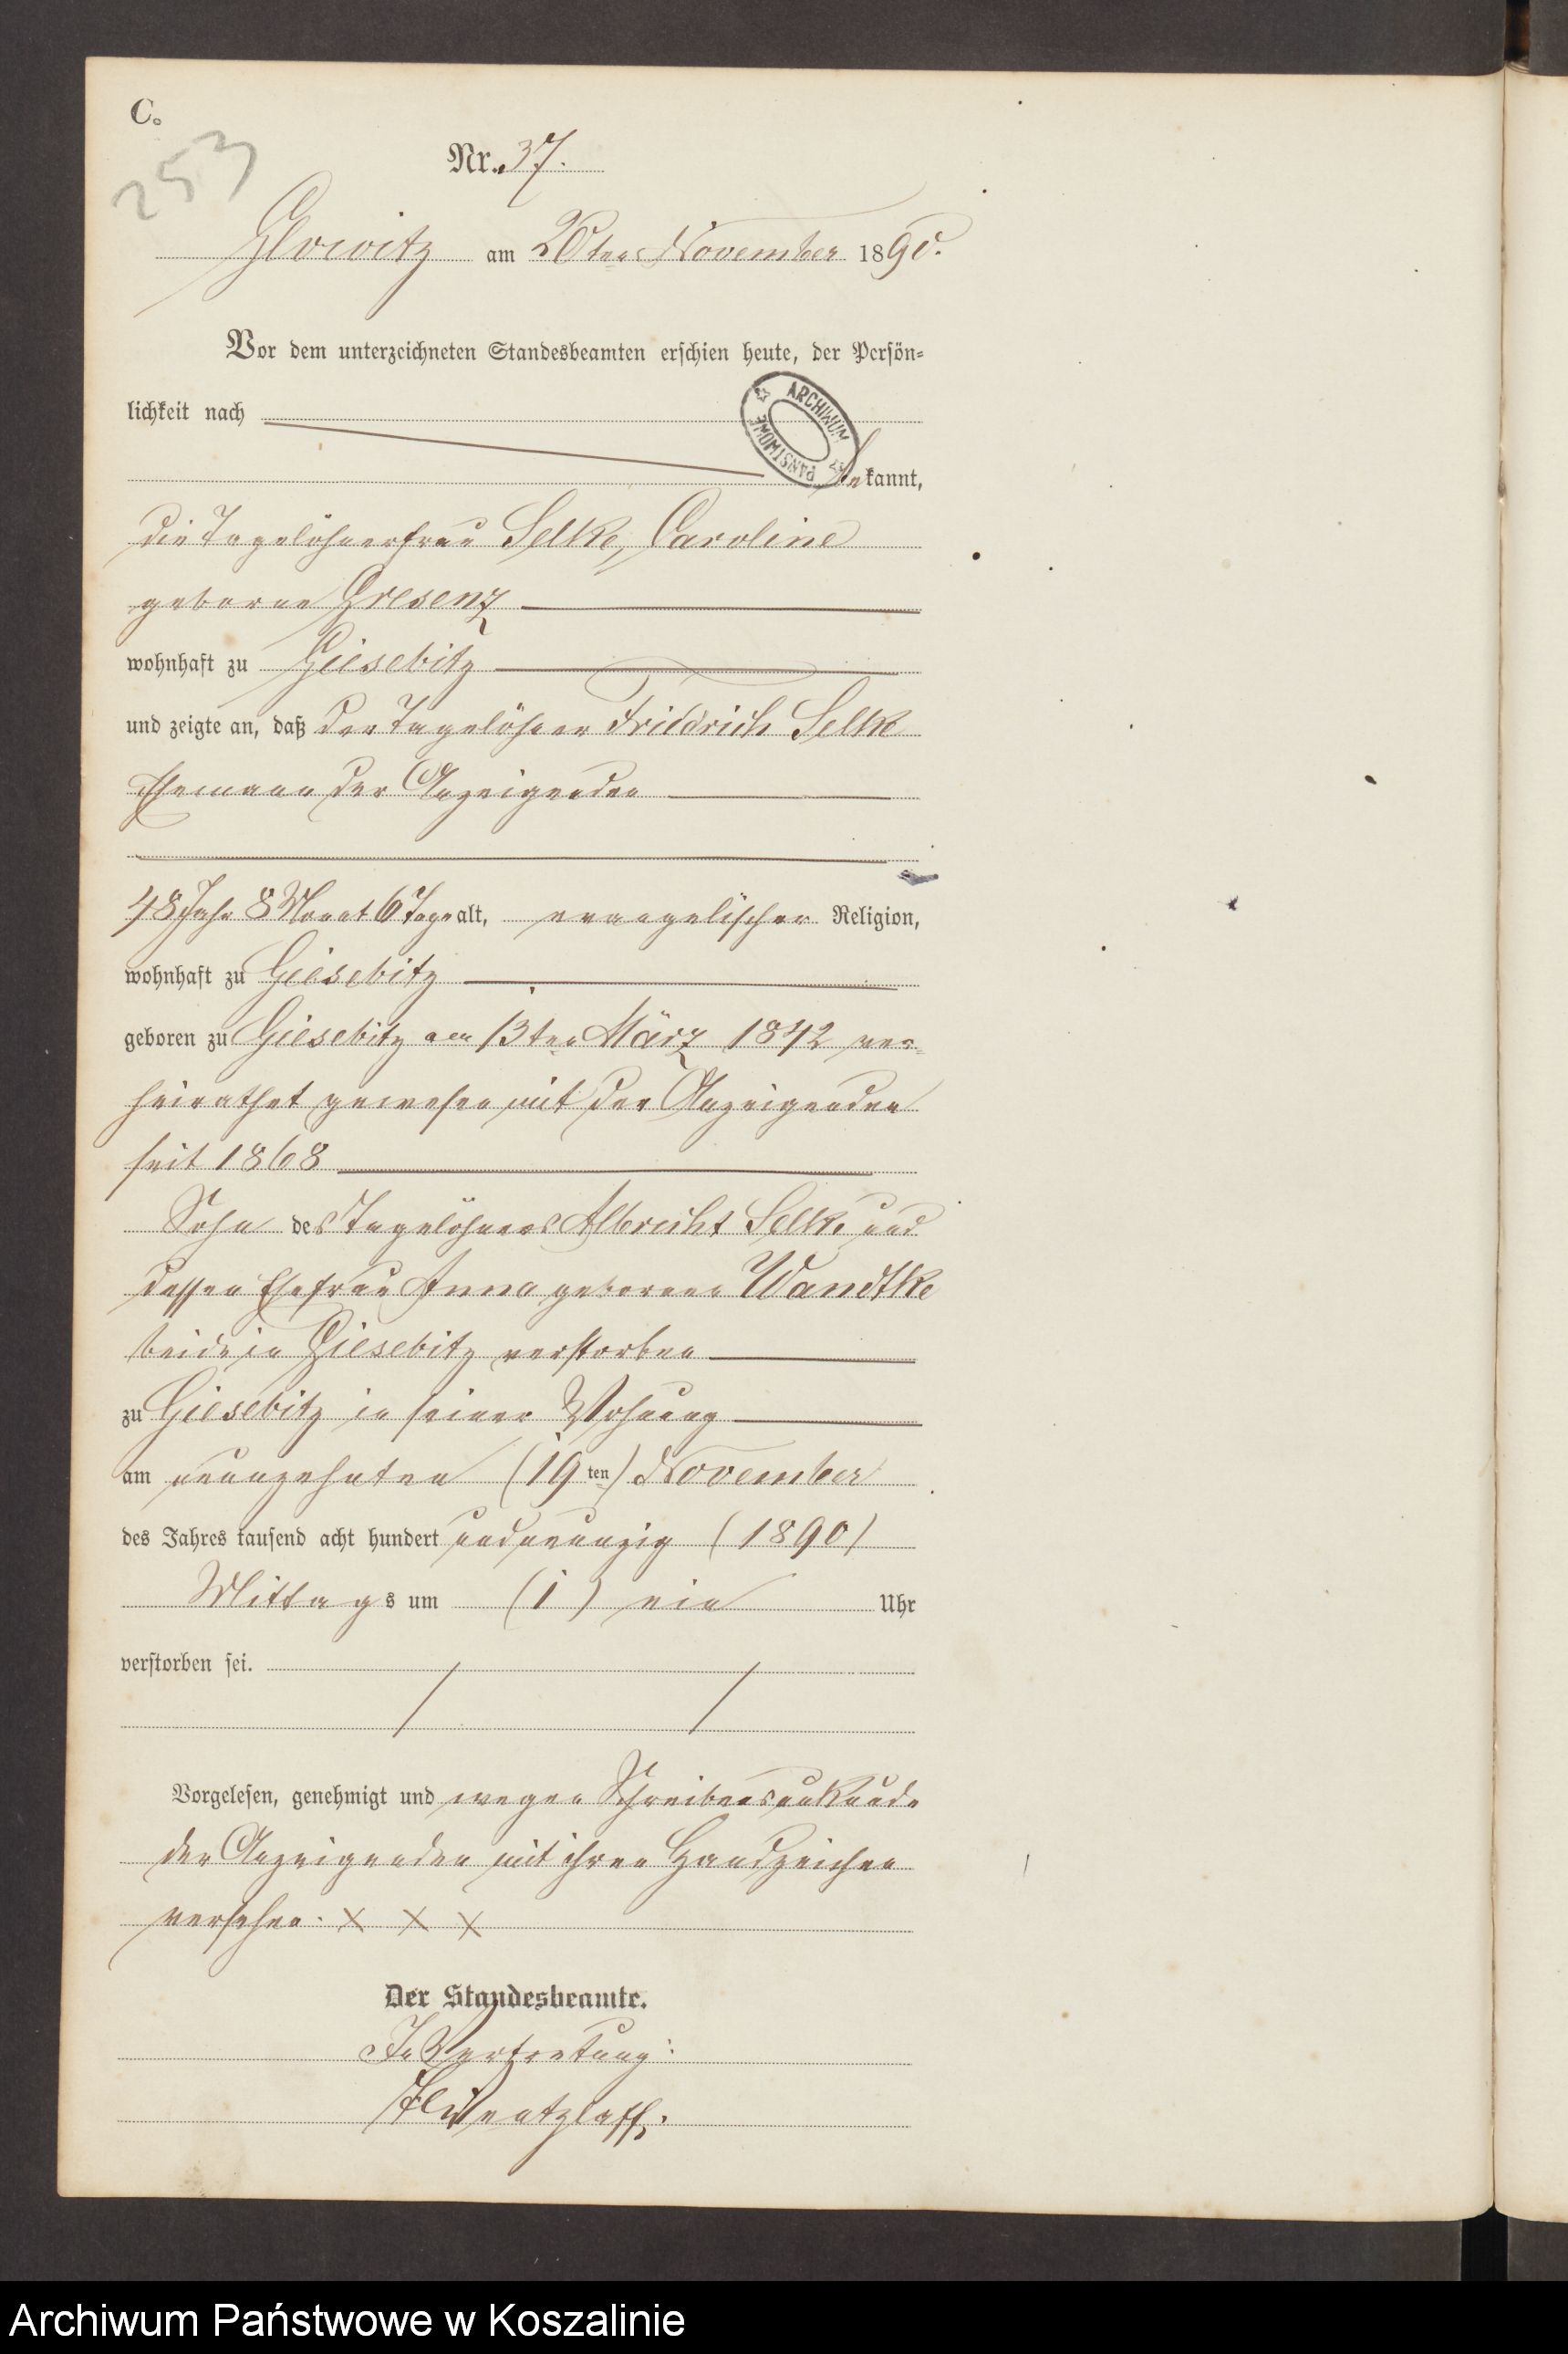 C.
253
Nr. 37.
Glowitz am 20ten November 1890.
Vor dem unterzeichneten Standesbeamten erschien heute, der Persön-
lichkeit nach
ARCHIWUM PAŃSTWOWE
bekannt,
die Tagelöhnerfrau Selke, Caroline
geborne Gresenz
wohnhaft zu Giesebitz
und zeigte an, daß der Tagelöhner Friedrich Selke
Ehemann der Anzeigenden
48 Jahr 8 Monat 6 Tage alt, evangelischer Religion,
wohnhaft zu Giesebitz
geboren zu Giesebitz am 13ten März 1842 ver-
heirathet gewesen mit der Anzeigenden
seit 1868
Sohn des Tagelöhners Albrecht Selke und
dessen Ehefrau Anna geborene Wandtke
beide in Giesebitz verstorben
zu Giesebitz in seiner Wohnung
am neunzehnten (19ten) November
des Jahres tausend acht hundert und neunzig (1890)
Mittags um (1) ein Uhr
verstorben sei.
Vorgelesen, genehmigt und wegen Schreibensunkunde
der Anzeigenden mit ihren Handzeichen
versehen. x x x
Der Standesbeamte.
In Vertretung:
Archiwum Państwowe w Koszalinie